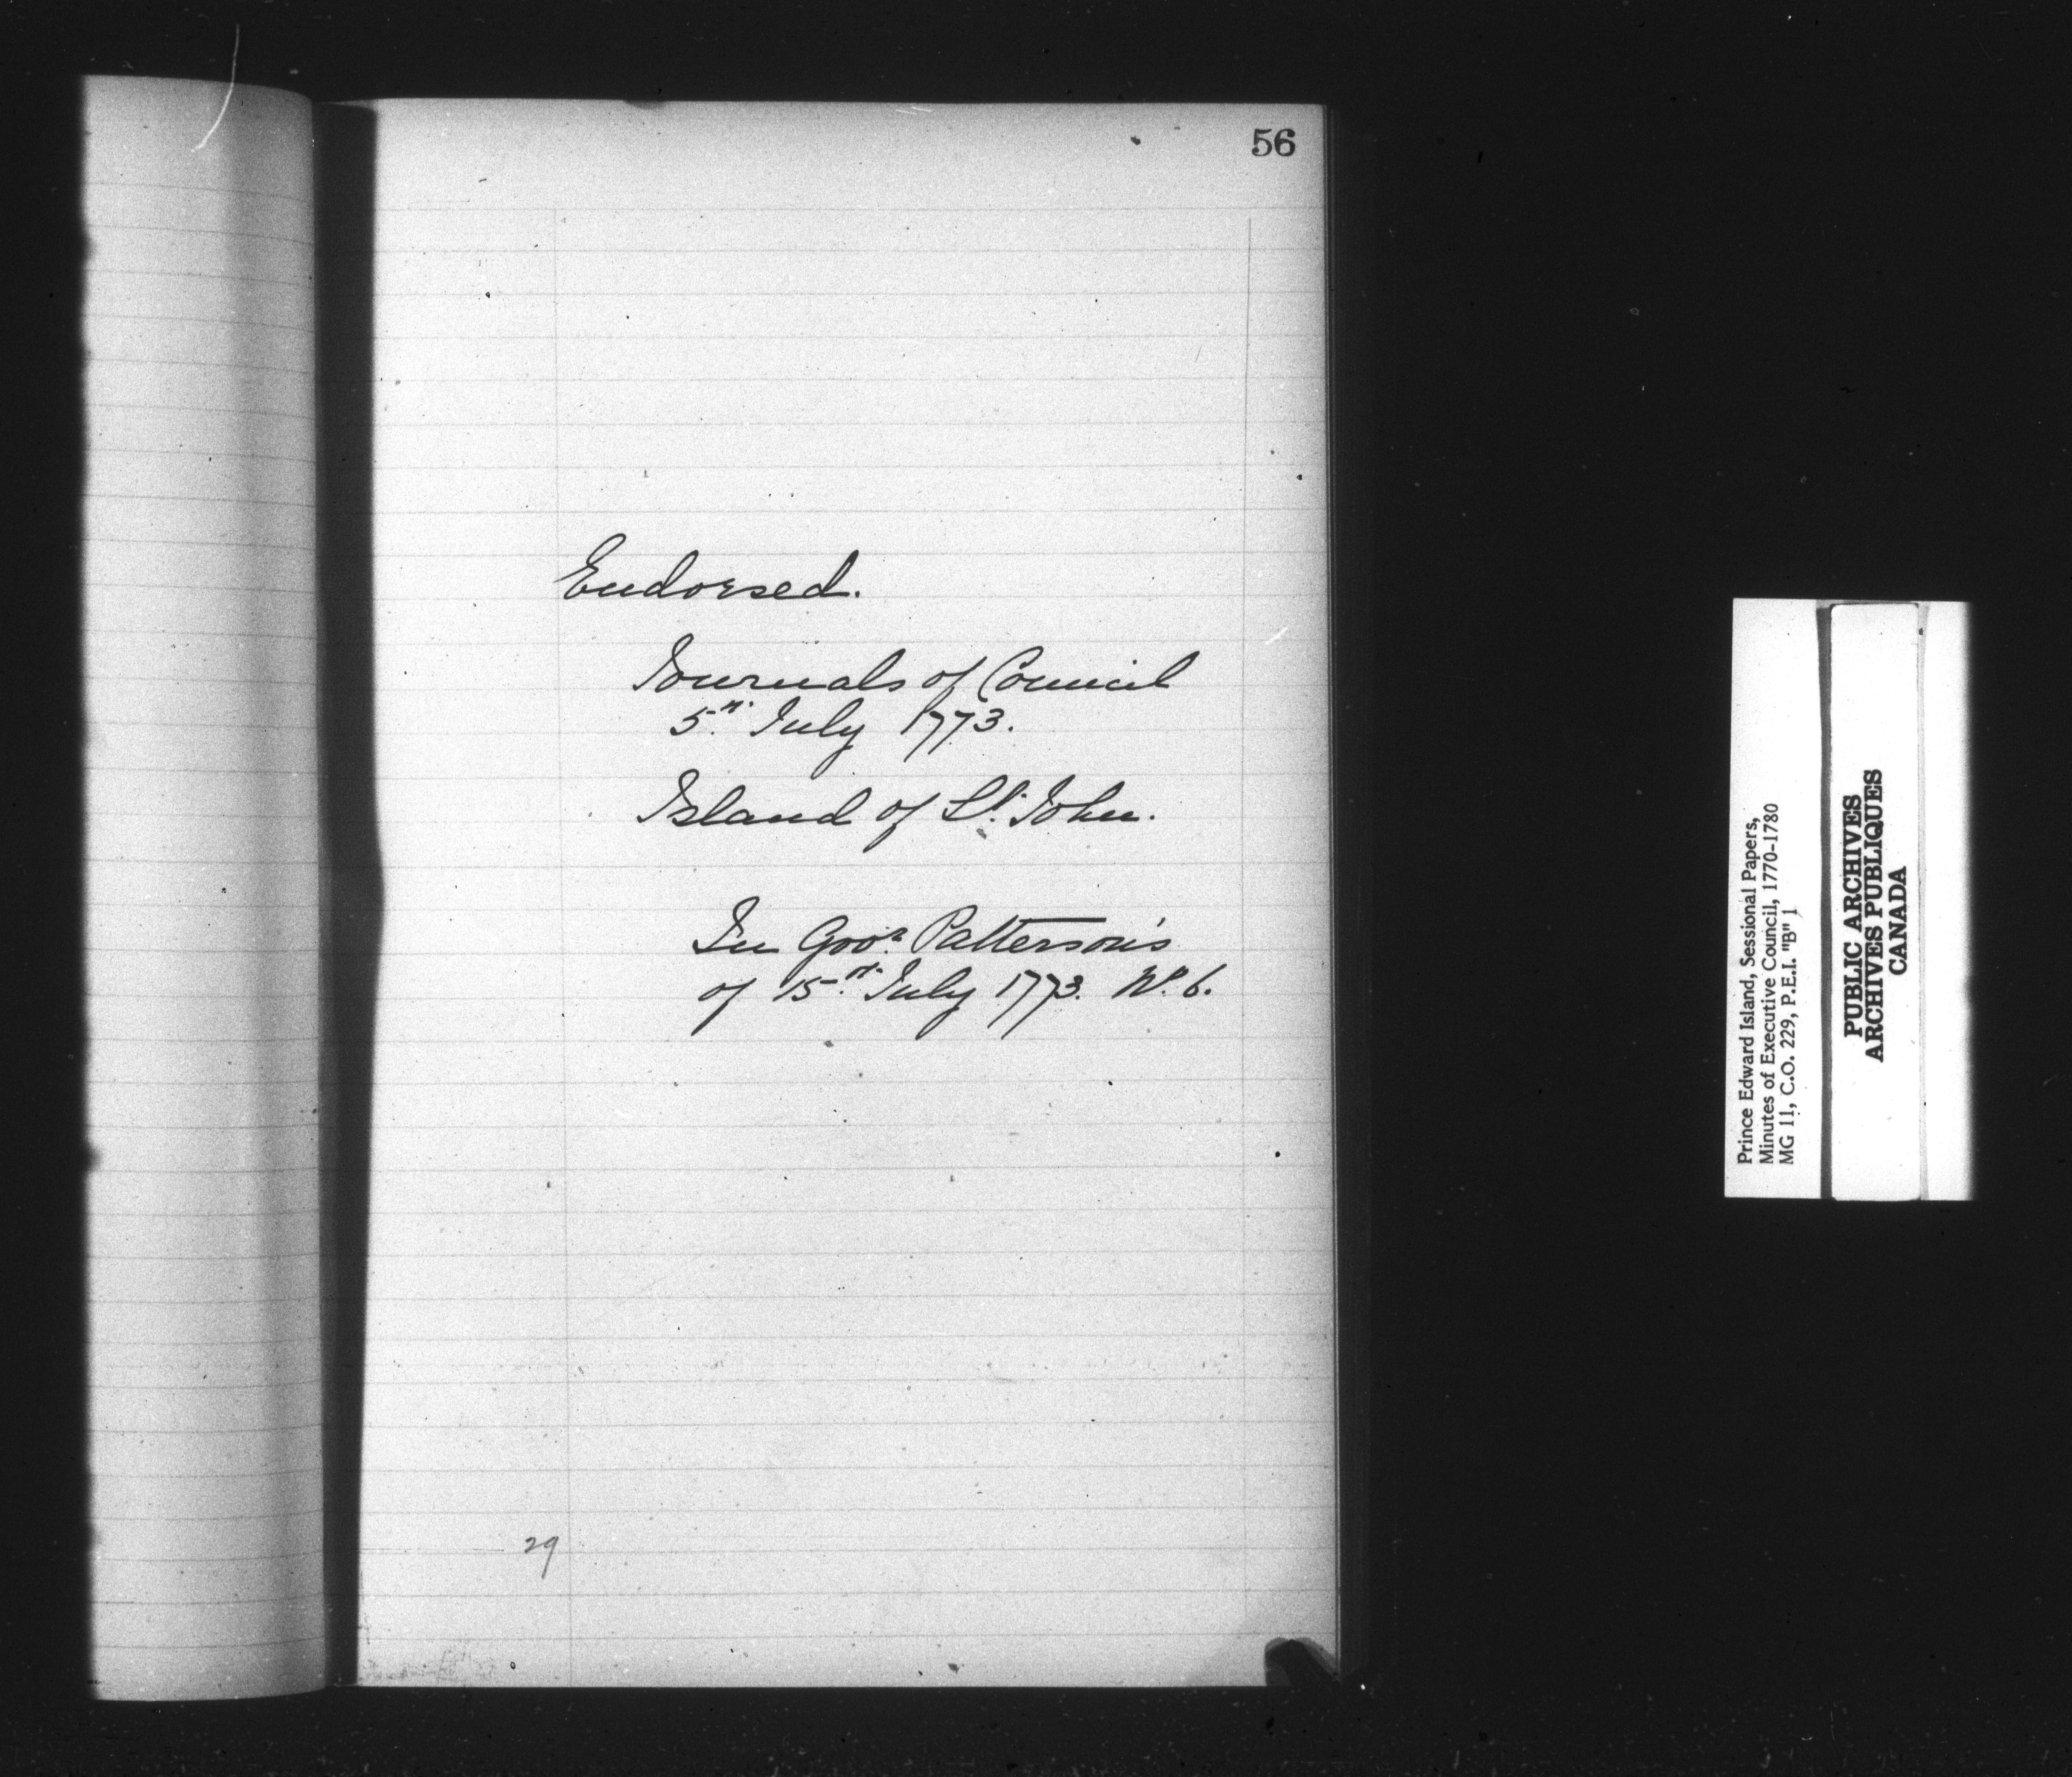 56
Endorsed.
Journals of Council
5th. July 1773.
Island of St. John.
In Govr. Patterson's
of 15th. July 1773. No. 6.
29
Prince Edward Island, Sessional Papers,
Minutes of Executive Council, 1770-1780
MG 11, C.O. 229, P.E.I. "B" 1
PUBLIC ARCHIVES
ARCHIVES PUBLIQUES
CANADA